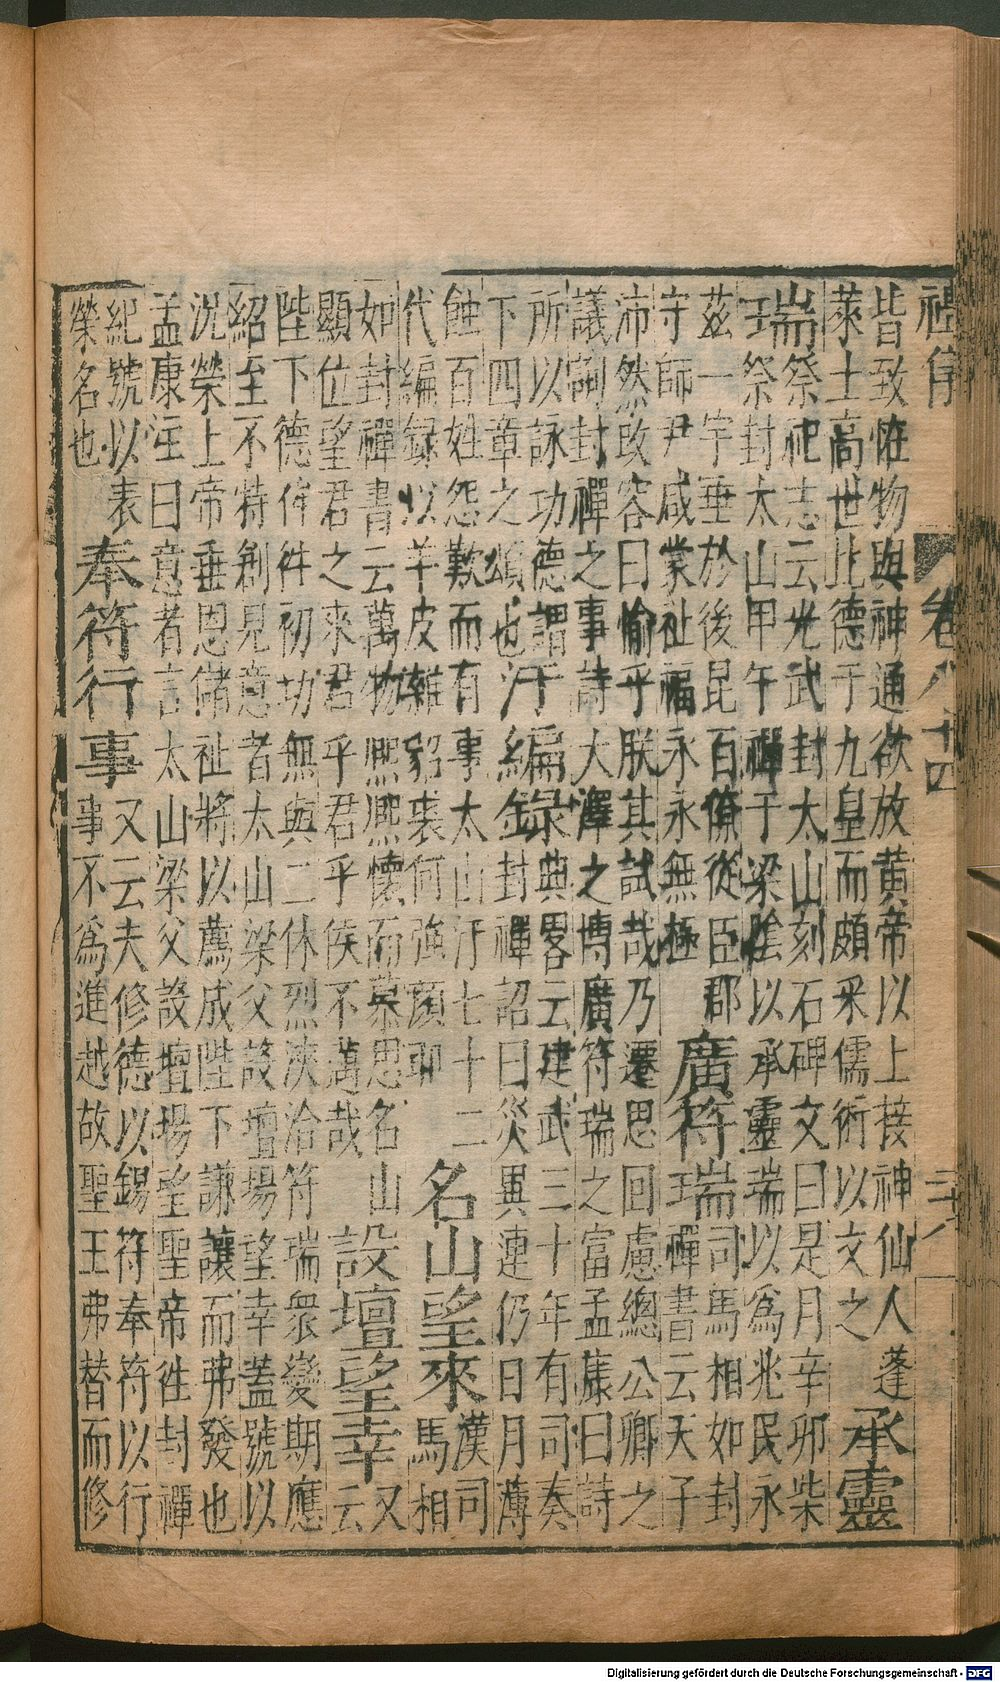 禮
卷八十四
皆致怪物與神通欲放黃帝以上接神仙人蓬
萊士高世比德于九皇而頗采儒術以文之
承靈瑞
祭祀志云光武封太山刻石碑文曰是月辛卯柴
祭封太山甲午禪于梁陰以承靈瑞以爲兆民永
茲一宇垂於後昆百僚從臣郡
守師尹咸蒙祉福永永無極
廣符瑞
司馬相如封
禪書云天子
沛然改容曰愉乎朕其試哉乃遷思回慮總公卿之
議詢封禪之事詩大澤之博廣符瑞之富孟康曰詩
所以詠功德謂
下四章之頌也
汙編錄
典畧云建武三十年有司奏
封禪詔曰災異連仍日月薄
蝕百姓怨歎而有事太山汙七十二
代編録以羊皮雜貂裘何強顏耶
名山望來
漢司
馬相
如封禪書云萬物熙熙懷而慕思名山
顯位望君之來君乎君乎侯不邁哉
設壇望幸
又
云
陛下德侔徃初功無與二休烈浹洽符瑞衆變期應
紹至不特創見意者太山梁父設壇場望幸蓋號以
況榮上帝垂恩儲祉將以薦成陛下謙讓而弗發也
孟康注曰意者言太山梁父設壇場望聖帝徃封禪
紀號以表
榮名也
奉符行事
又云夫修德以錫符奉符以行
事不爲進越故聖王弗替而修
Digitalisierung gefördert durch die Deutsche Forschungsgemeinschaft - DFG